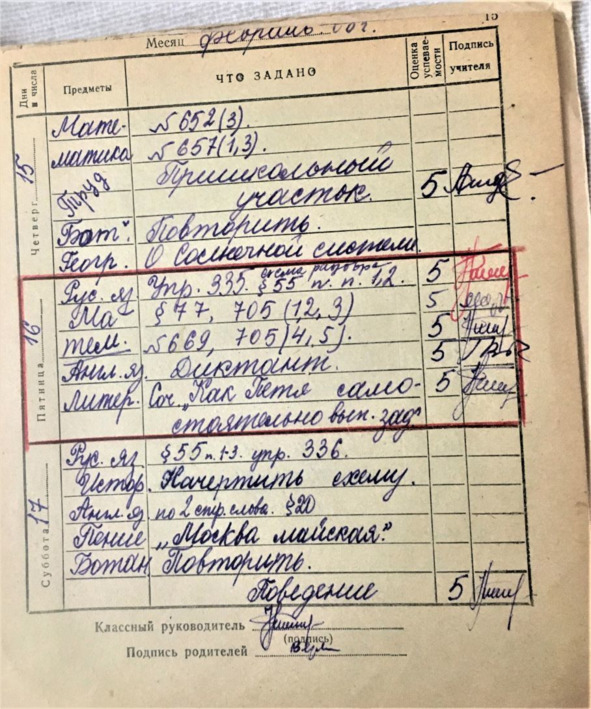 15
Месяц февраль
Дни и числа
Предметы
ЧТО ЗАДАНО
Оценка успеваемости
Подпись учителя
Четверг 15
Мате- №652(3).
матика №657(1,3).
Труд Пришкольный
участок. 5
Бот. Повторить.
Геогр. О Солнечной системе.
Пятница 16
схема разбора
Рус. яз. Упр. 335. §55 п. п. 1,2. 5
Ма §77, 705(12,3) 5
тем. №669, 705(4,5). 5
Англ. яз. Диктант. 5
Литер. Соч. „Как Петя само- 5
стоятельно вып. зад."
Суббота 17
Рус. яз. §55 п. 1-3. упр. 336.
Истор. Начертить схему.
Англ. яз по 2 стр. слова. §20
Пение „Москва майская."
Ботан Повторить.
Поведение 5
Классный руководитель
(подпись)
Подпись родителей